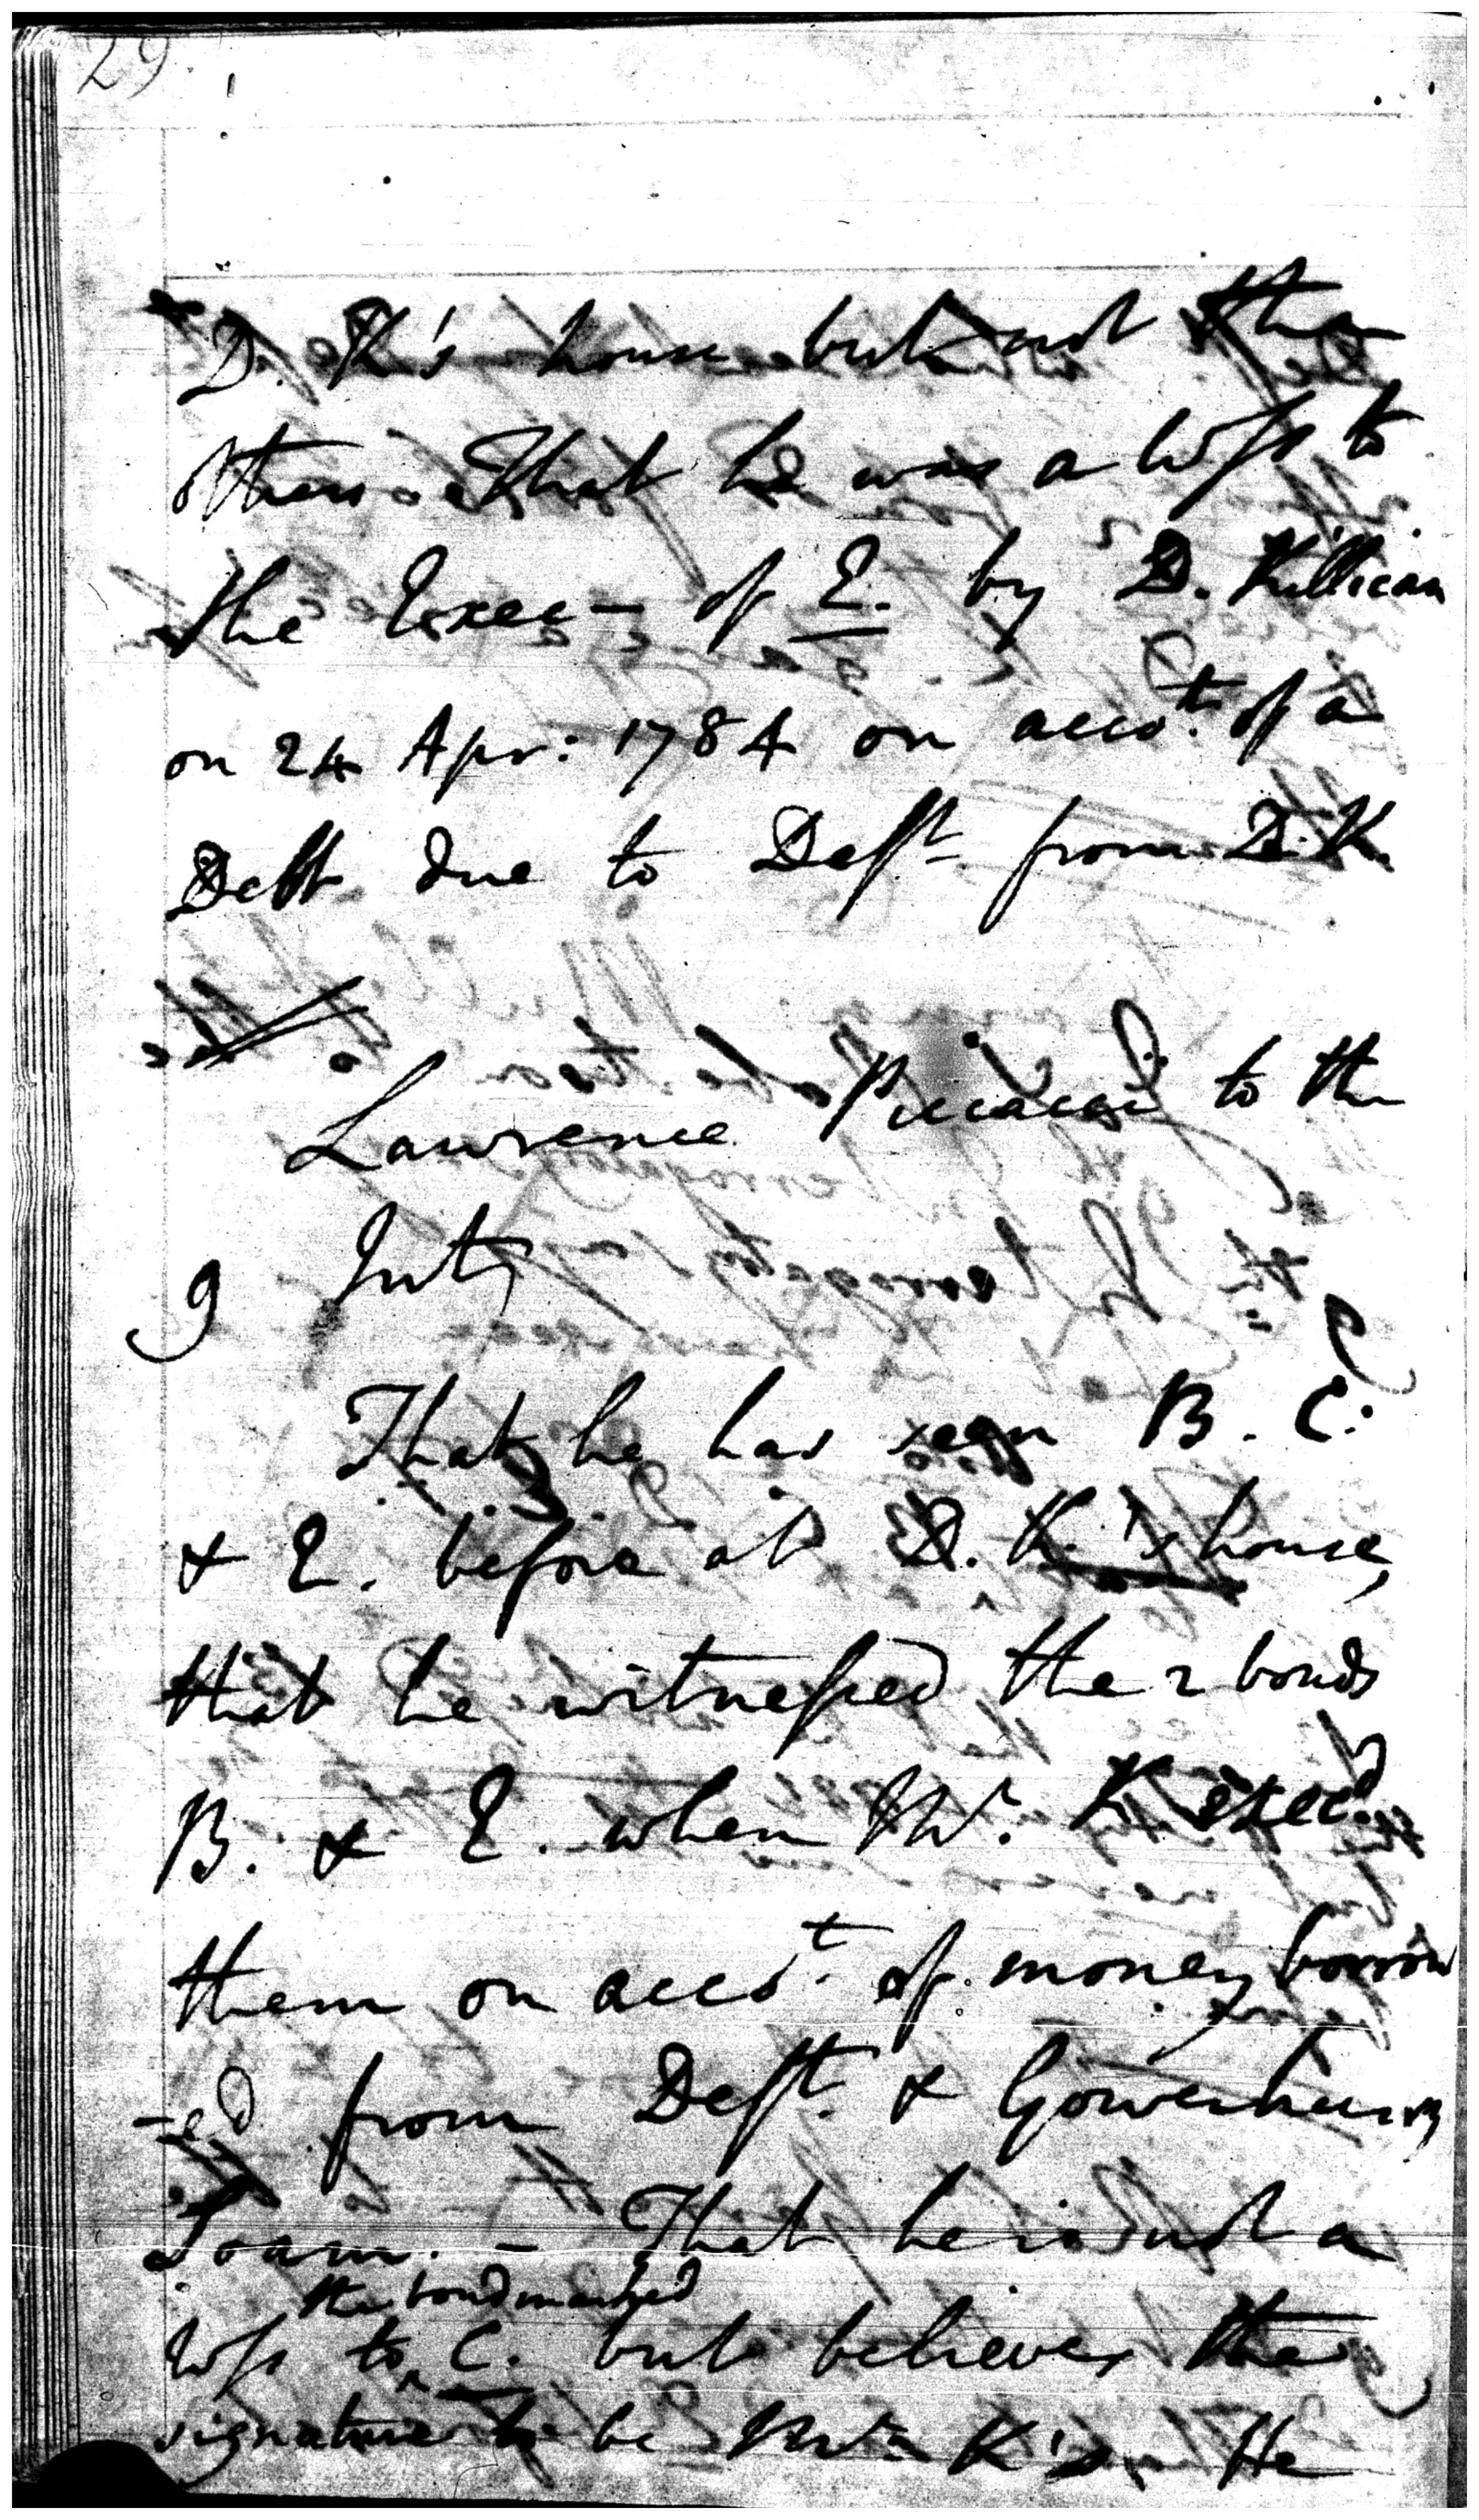 29
D. K's house but not the
others. That he was a Wss to
the Exec- of E. by D. Killican
on 24 Apr: 1784 on acco.t of a
Debt due to Deft. from D. K.
Lawrence to the
9 Inty
That he has seen B. C:
& E. before at D. K.'s house,
that he witnessed the 2 bonds
B. & E. when Mr. K exec.d
them on acco.t of money borrow
-ed from Deft. & 
. - That he is not a
the bond marked
Wss to ^ C. but believes the
signature to be Mr. K's. He